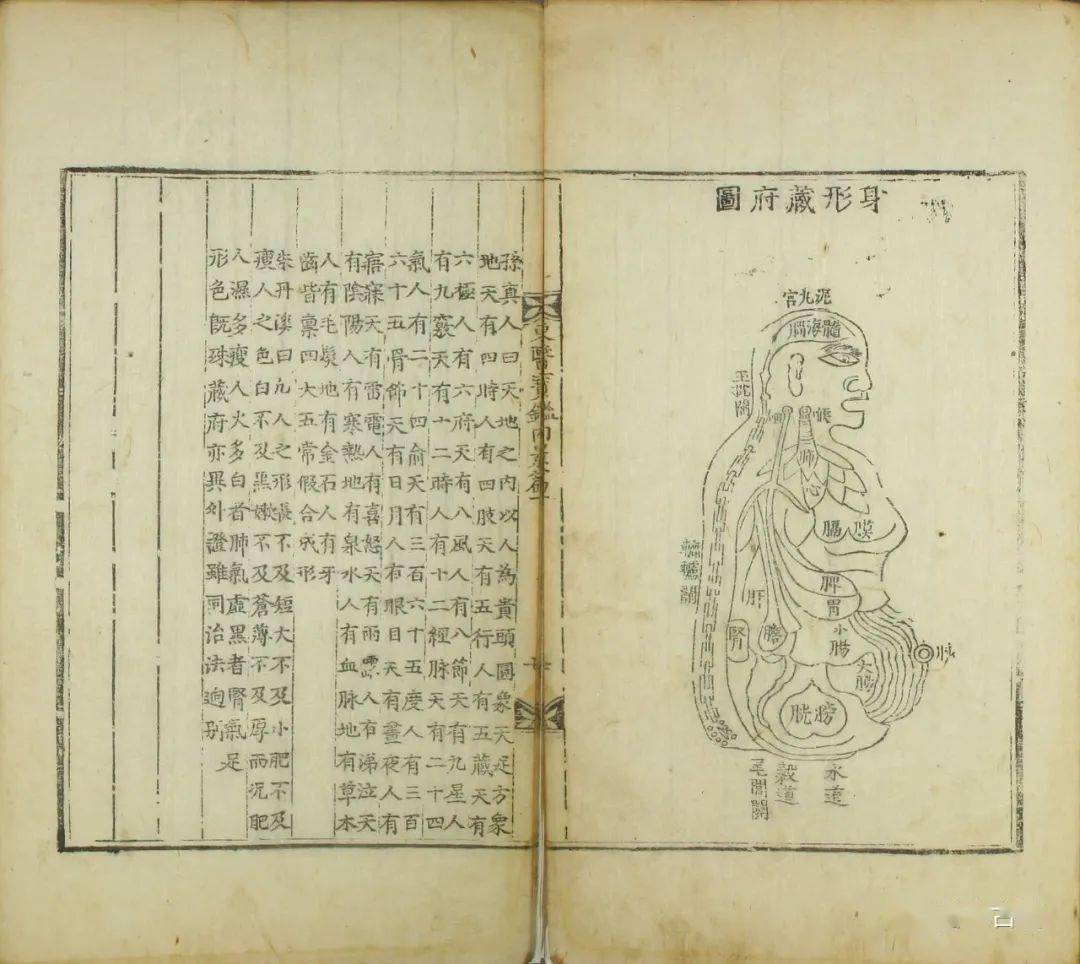 身形藏府圖
泥丸宮
髓海腦
玉枕關
咽
喉
肺
心
膈膜
轆轤關
脾
胃
肝
小腸
腎
膽
大腸
臍
膀胱
水道
穀道
尾閭關
東醫寶鑑內景篇一
孫真人曰天地之內以人為貴頭圓象天足方象
地天有四時人有四肢天有五行人有五藏天有
六極人有六府天有八風人有八節天有九星人
有九竅天有十二時人有十二經脉天有二十四
氣人有二十四俞天有三百六十五度人有三百
六十五骨節天有日月人有眼目天有晝夜人有
寤寐天有雷電人有喜怒天有雨露人有涕泣天
有陰陽人有寒熱地有泉水人有血脉地有草木
人有毛髮地有金石人有牙
齒皆稟四大五常假合成形
朱丹溪曰凡人之形長不及短大不及小肥不及
瘦人之色白不及黑嫩不及蒼薄不及厚而況肥
人濕多瘦人火多白者肺氣虛黑者腎氣足
形色既殊藏府亦異外證雖同治法逈別